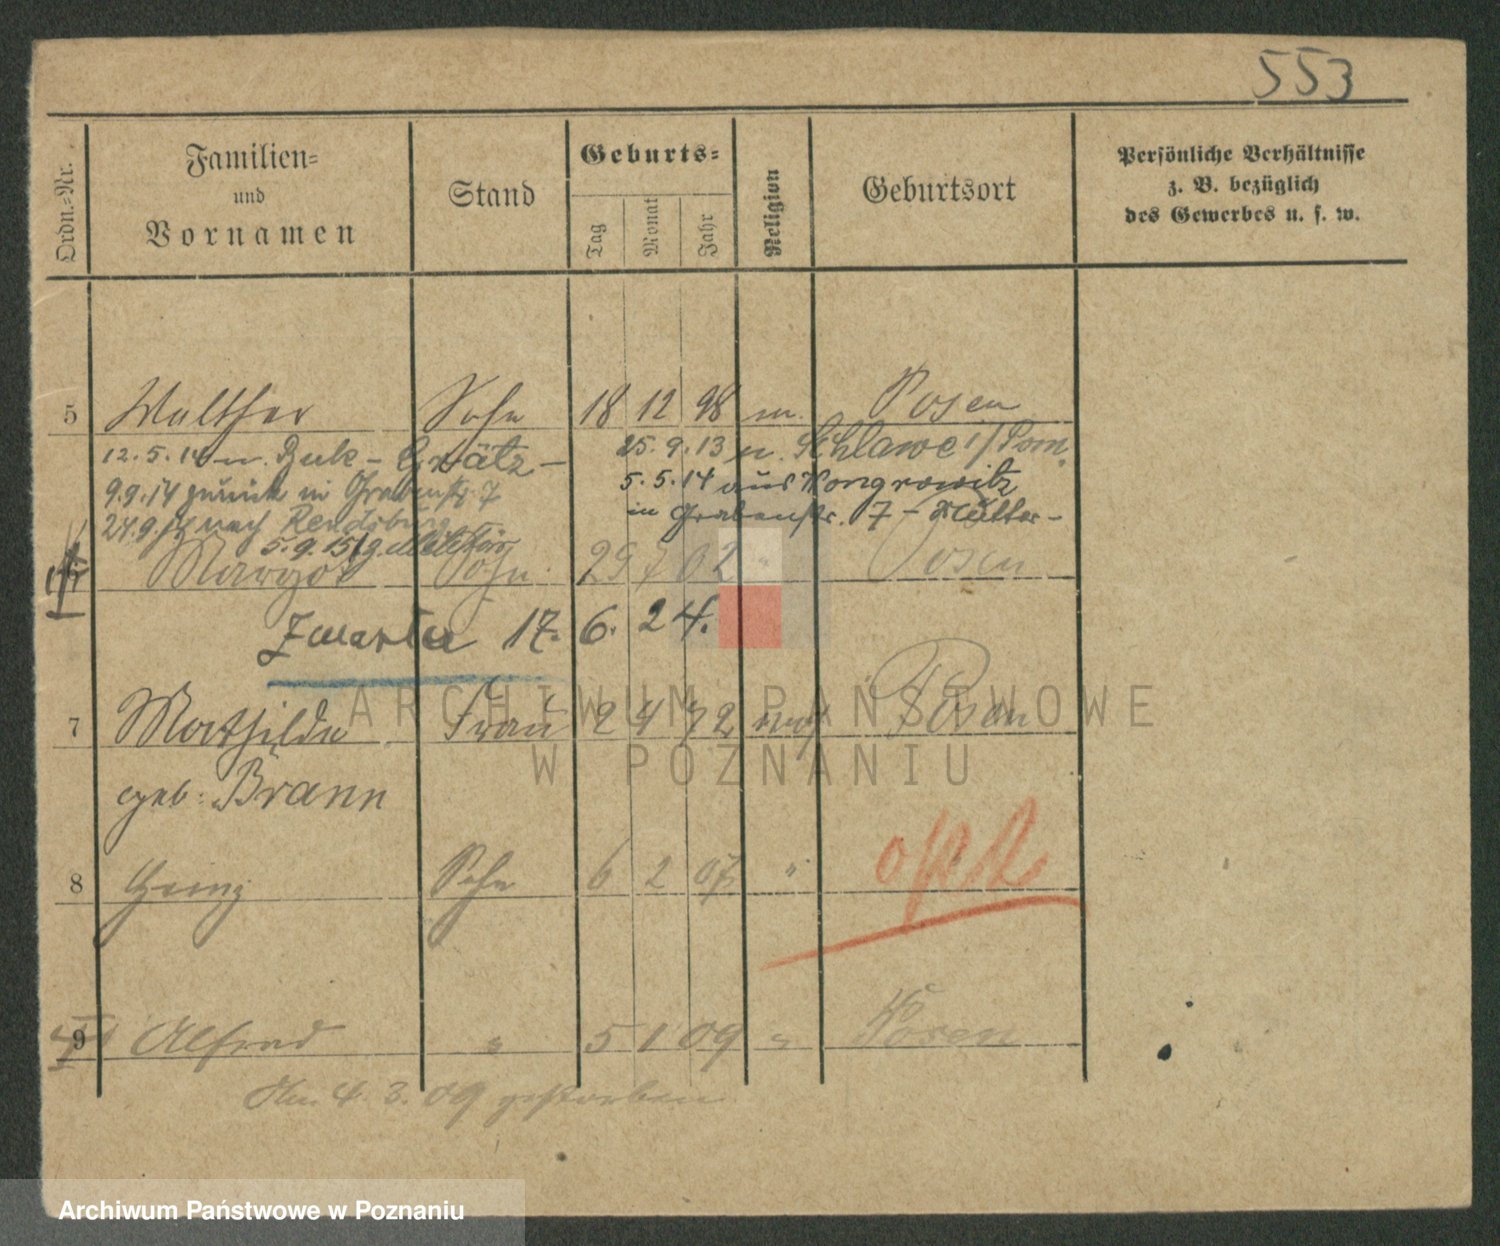 553
Ordn.-Nr.
Familien-
und
Vornamen
Stand
Geburts-
Tag
Monat
Jahr
Religion
Geburtsort
Persönliche Verhältnisse
z. B. bezüglich
des Gewerbes u. s. w.
5 Walther Sohn 18 12 98 m. Posen
12.5.14 n. Buk - Grätz - 25.9.13 n. Schlawe i/Pom.
9.9.14 zurück in Grabenstr. 7 5.5.14 aus Wongrowitz
24.9.14 nach Rendsburg in Grabenstr. 7 - Mutter -
5.9.15 z. Militär
Margot 29 7 02 " Posen
17. 6. 24.
7 Mathilde Frau 2 4 72 mos Posen
geb. Brann
8 Heinz Sohn 6 2 07 "
9 Alfred " 5 1 09 " Posen
Am 4. 3. 09 gestorben
ARCHIWUM PAŃSTWOWE
W POZNANIU
Archiwum Państwowe w Poznaniu